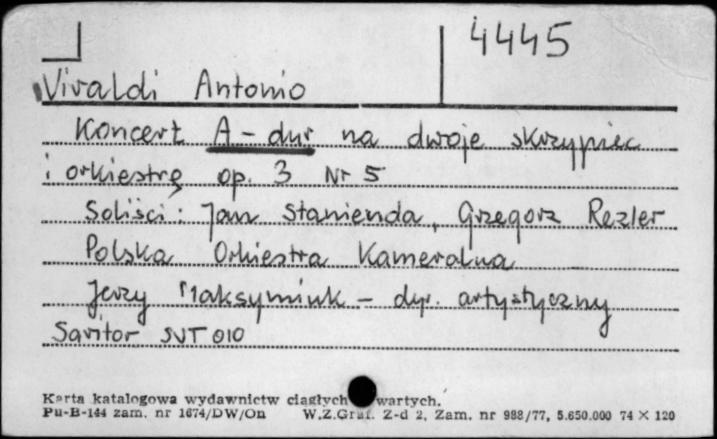 4445
Vivaldi Antonio
Koncert A-dur na dwoje skrzypiec
i orkiestrę op. 3 Nr 5
Soliści: Jan Stanienda, Grzegorz Rezler
Polska Orkiestra Kameralna
Jerzy Maksymiuk - dyr. artystyczny
Savitor SVT 010
Karta katalogowa wydawnictw ciągłych wartych.
Pu-B-144 zam. nr 1674/DW/On W.Z.Graf. Z-d 2, Zam. nr 988/77, 5.650.000 74 × 120